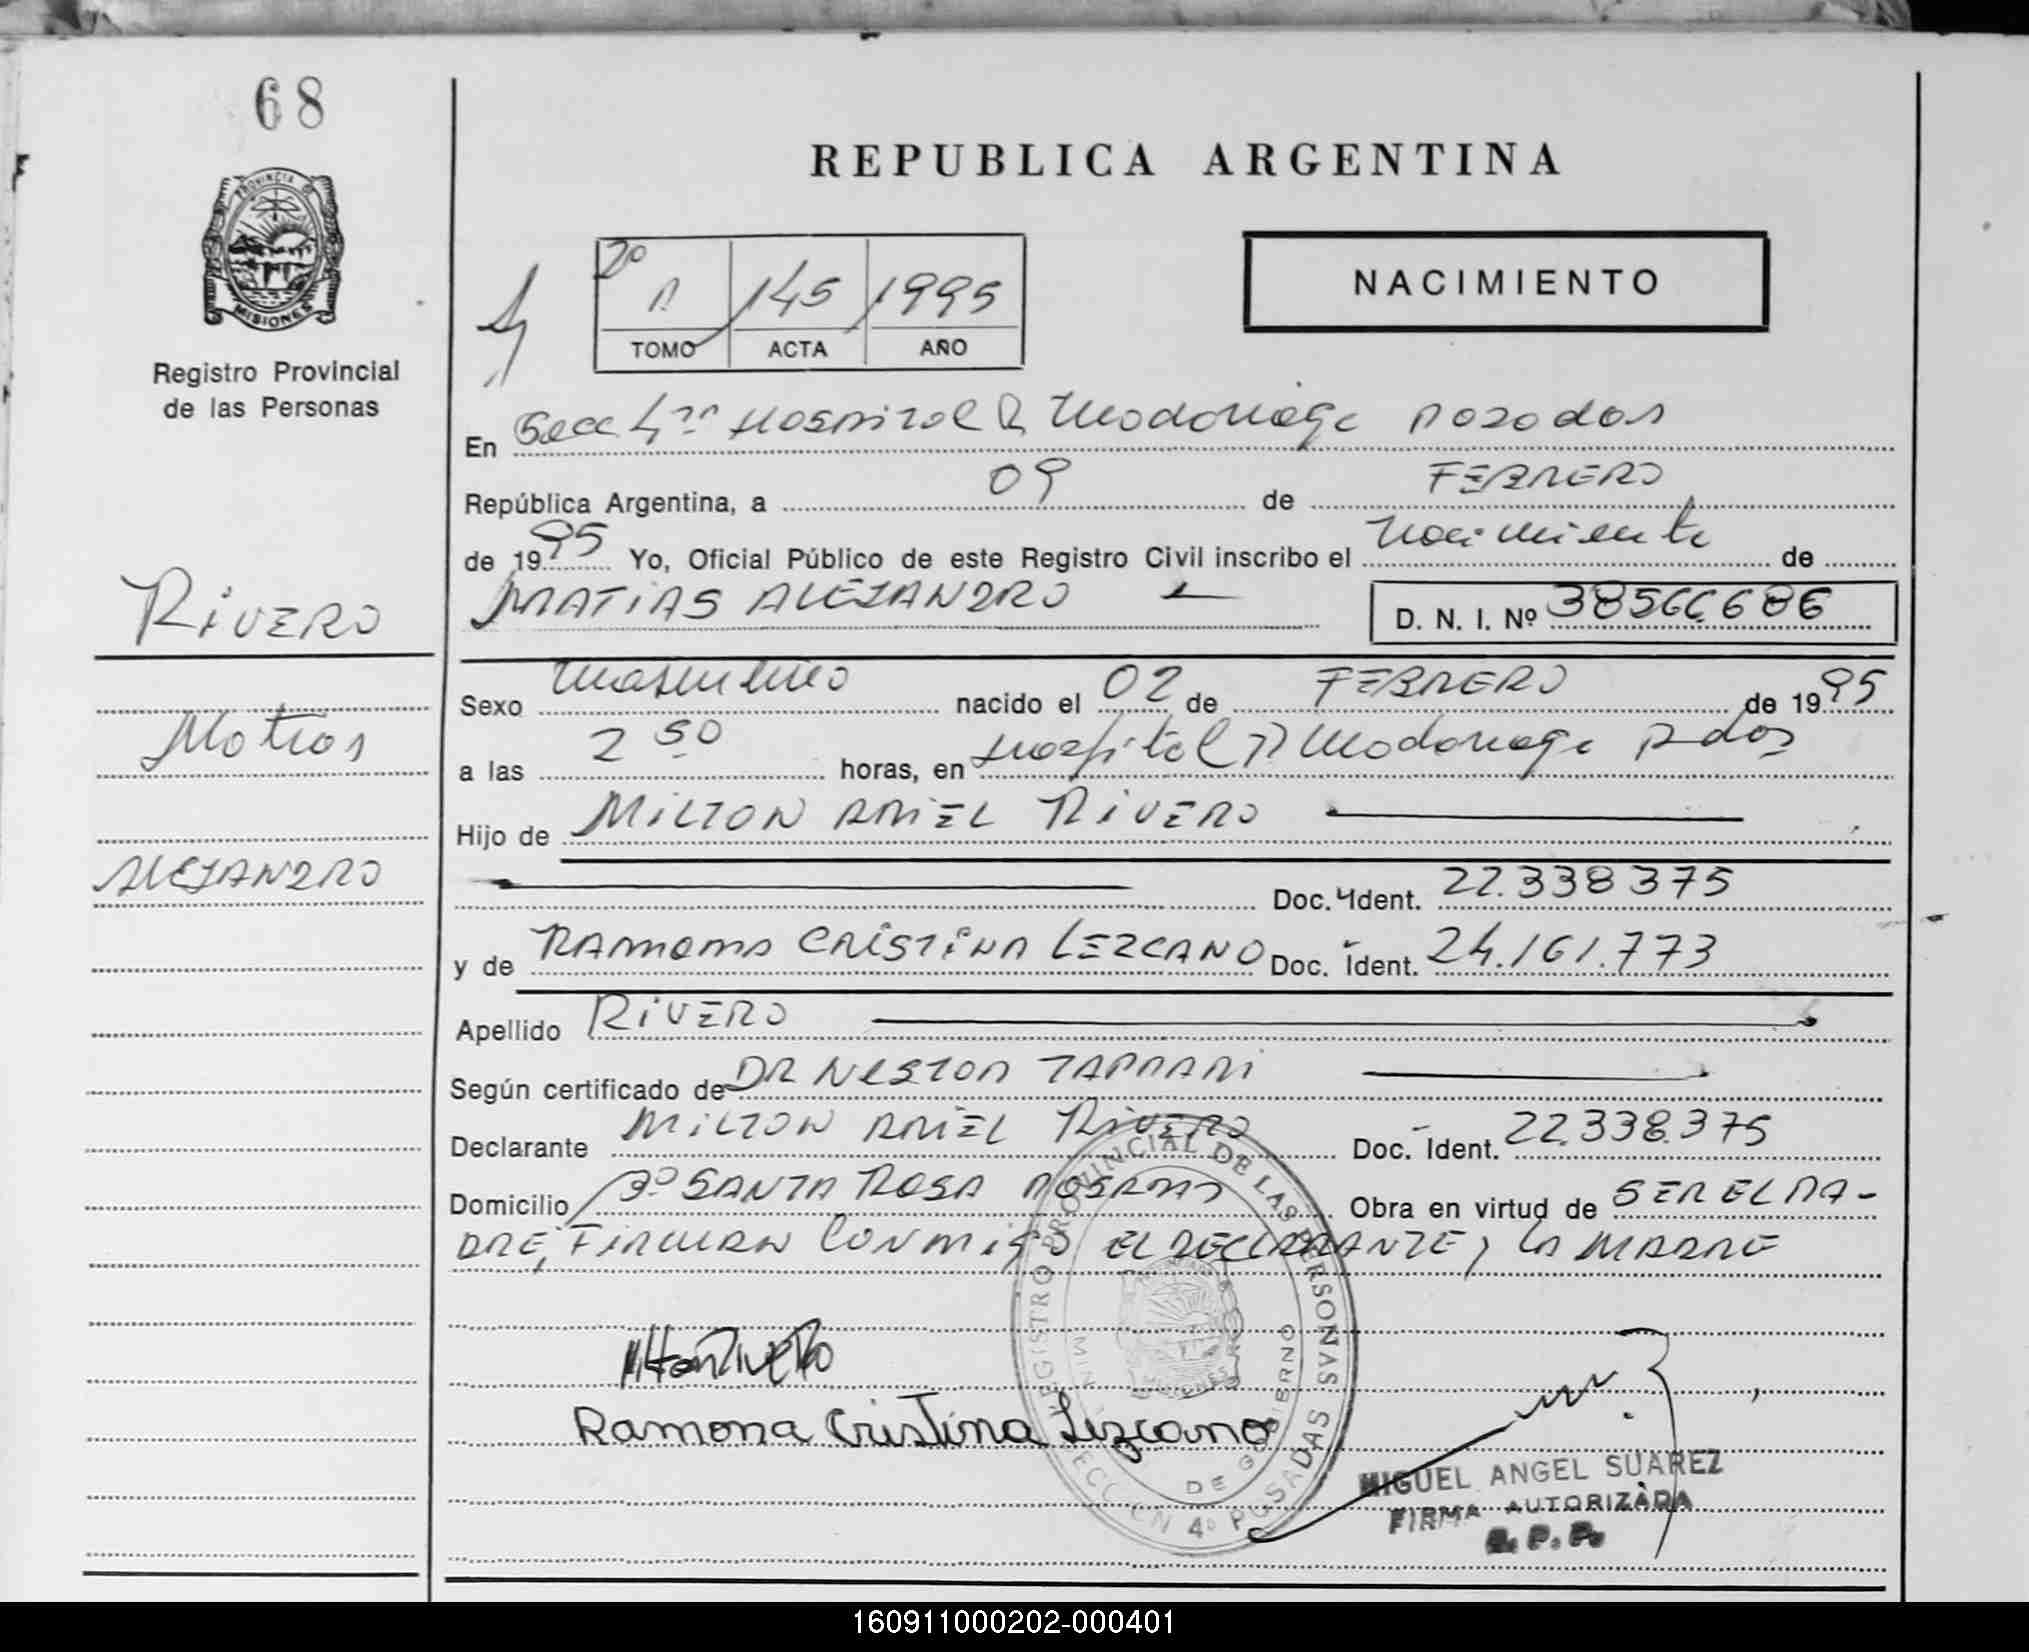 68
REPUBLICA ARGENTINA
PROVINCIA DE
MISIONES
Registro Provincial
de las Personas
NACIMIENTO
2º
145 1995
TOMO ACTA AÑO
En Secc 4ta Hospital R Madariaga Posadas
República Argentina, a 09 de FEBRERO
de 1995 Yo, Oficial Público de este Registro Civil inscribo el Nacimiento de
MATIAS ALEJANDRO D. N. I. Nº 38566686
RIVERO
Matias
ALEJANDRO
Sexo Masculino nacido el 02 de FEBRERO de 1995
a las 2 50 horas, en Hospital R Madariaga Pdas
Hijo de MILTON ARIEL RIVERO
Doc. Ident. 22.338 375
y de RAMONA CRISTINA LEZCANO Doc. Ident. 24.161.773
Apellido RIVERO
Según certificado de DR NESTOR
Declarante MILTON ARIEL RIVERO Doc. Ident. 22.338.375
Domicilio Bº SANTA ROSA POSADAS Obra en virtud de SER EL PA-
DRE, FIRMAN CONMIGO EL DECLARANTE y LA MADRE
REGISTRO PROVINCIAL DE LAS PERSONAS
DE GOBIERNO
SECCION 4º POSADAS
Milton Rivero
Ramona Cristina Lezcano
MIGUEL ANGEL SUAREZ
FIRMA AUTORIZADA
R. P. P.
160911000202-000401